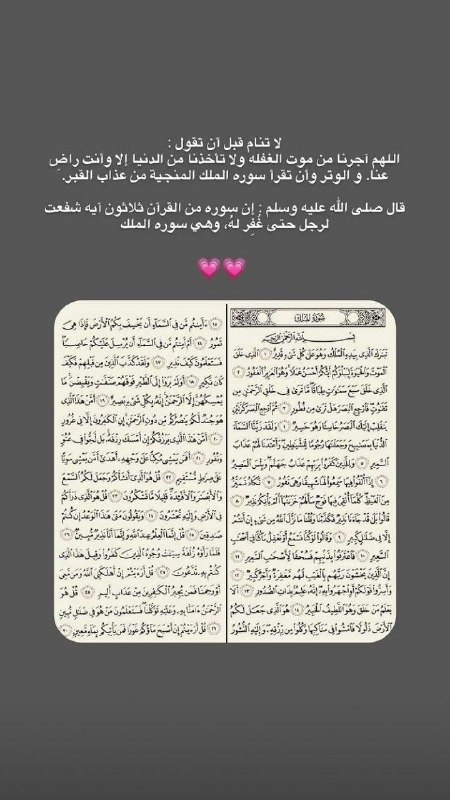 لا تنام قبل أن تقول :
اللهم آجرنا من موت الغفله ولا تأخذنا من الدنيا إلا وأنت راضٍ
عنا. و الوتر وأن تقرأ سوره الملك المنجية من عذاب القبر.
قال صلى الله عليه وسلم : إن سوره من القرآن ثلاثون آيه شفعت
لرجل حتى غُفِر لهُ، وهي سوره الملك
سُورَةُ المُلْك
بِسْمِ اللَّهِ الرَّحْمَٰنِ الرَّحِيمِ
تَبَٰرَكَ ٱلَّذِى بِيَدِهِ ٱلْمُلْكُ وَهُوَ عَلَىٰ كُلِّ شَىْءٍ قَدِيرٌ ١ ٱلَّذِى خَلَقَ
ٱلْمَوْتَ وَٱلْحَيَوٰةَ لِيَبْلُوَكُمْ أَيُّكُمْ أَحْسَنُ عَمَلًا وَهُوَ ٱلْعَزِيزُ ٱلْغَفُورُ ٢
ٱلَّذِى خَلَقَ سَبْعَ سَمَٰوَٰتٍ طِبَاقًا مَّا تَرَىٰ فِى خَلْقِ ٱلرَّحْمَٰنِ مِن
تَفَٰوُتٍ فَٱرْجِعِ ٱلْبَصَرَ هَلْ تَرَىٰ مِن فُطُورٍ ٣ ثُمَّ ٱرْجِعِ ٱلْبَصَرَ كَرَّتَيْنِ
يَنقَلِبْ إِلَيْكَ ٱلْبَصَرُ خَاسِئًا وَهُوَ حَسِيرٌ ٤ وَلَقَدْ زَيَّنَّا ٱلسَّمَآءَ
ٱلدُّنْيَا بِمَصَٰبِيحَ وَجَعَلْنَٰهَا رُجُومًا لِّلشَّيَٰطِينِ وَأَعْتَدْنَا لَهُمْ عَذَابَ
ٱلسَّعِيرِ ٥ وَلِلَّذِينَ كَفَرُوا۟ بِرَبِّهِمْ عَذَابُ جَهَنَّمَ وَبِئْسَ ٱلْمَصِيرُ
٦ إِذَآ أُلْقُوا۟ فِيهَا سَمِعُوا۟ لَهَا شَهِيقًا وَهِىَ تَفُورُ ٧ تَكَادُ تَمَيَّزُ
مِنَ ٱلْغَيْظِ كُلَّمَآ أُلْقِىَ فِيهَا فَوْجٌ سَأَلَهُمْ خَزَنَتُهَآ أَلَمْ يَأْتِكُمْ نَذِيرٌ ٨
قَالُوا۟ بَلَىٰ قَدْ جَآءَنَا نَذِيرٌ فَكَذَّبْنَا وَقُلْنَا مَا نَزَّلَ ٱللَّهُ مِن شَىْءٍ إِنْ أَنتُمْ
إِلَّا فِى ضَلَٰلٍ كَبِيرٍ ٩ وَقَالُوا۟ لَوْ كُنَّا نَسْمَعُ أَوْ نَعْقِلُ مَا كُنَّا فِىٓ أَصْحَٰبِ
ٱلسَّعِيرِ ١٠ فَٱعْتَرَفُوا۟ بِذَنۢبِهِمْ فَسُحْقًا لِّأَصْحَٰبِ ٱلسَّعِيرِ ١١
إِنَّ ٱلَّذِينَ يَخْشَوْنَ رَبَّهُم بِٱلْغَيْبِ لَهُم مَّغْفِرَةٌ وَأَجْرٌ كَبِيرٌ ١٢
وَأَسِرُّوا۟ قَوْلَكُمْ أَوِ ٱجْهَرُوا۟ بِهِۦٓ إِنَّهُۥ عَلِيمٌۢ بِذَاتِ ٱلصُّدُورِ ١٣ أَلَا
يَعْلَمُ مَنْ خَلَقَ وَهُوَ ٱللَّطِيفُ ٱلْخَبِيرُ ١٤ هُوَ ٱلَّذِى جَعَلَ لَكُمُ
ٱلْأَرْضَ ذَلُولًا فَٱمْشُوا۟ فِى مَنَاكِبِهَا وَكُلُوا۟ مِن رِّزْقِهِۦ وَإِلَيْهِ ٱلنُّشُورُ
١٥ ءَأَمِنتُم مَّن فِى ٱلسَّمَآءِ أَن يَخْسِفَ بِكُمُ ٱلْأَرْضَ فَإِذَا هِىَ
تَمُورُ ١٦ أَمْ أَمِنتُم مَّن فِى ٱلسَّمَآءِ أَن يُرْسِلَ عَلَيْكُمْ حَاصِبًا
فَسَتَعْلَمُونَ كَيْفَ نَذِيرِ ١٧ وَلَقَدْ كَذَّبَ ٱلَّذِينَ مِن قَبْلِهِمْ فَكَيْفَ
كَانَ نَكِيرِ ١٨ أَوَلَمْ يَرَوْا۟ إِلَى ٱلطَّيْرِ فَوْقَهُمْ صَٰٓفَّٰتٍ وَيَقْبِضْنَ مَا
يُمْسِكُهُنَّ إِلَّا ٱلرَّحْمَٰنُ إِنَّهُۥ بِكُلِّ شَىْءٍۭ بَصِيرٌ ١٩ أَمَّنْ هَٰذَا ٱلَّذِى
هُوَ جُندٌ لَّكُمْ يَنصُرُكُم مِّن دُونِ ٱلرَّحْمَٰنِ إِنِ ٱلْكَٰفِرُونَ إِلَّا فِى غُرُورٍ
٢٠ أَمَّنْ هَٰذَا ٱلَّذِى يَرْزُقُكُمْ إِنْ أَمْسَكَ رِزْقَهُۥ بَل لَّجُّوا۟ فِى عُتُوٍّ
وَنُفُورٍ ٢١ أَفَمَن يَمْشِى مُكِبًّا عَلَىٰ وَجْهِهِۦٓ أَهْدَىٰٓ أَمَّن يَمْشِى سَوِيًّا
عَلَىٰ صِرَٰطٍ مُّسْتَقِيمٍ ٢٢ قُلْ هُوَ ٱلَّذِىٓ أَنشَأَكُمْ وَجَعَلَ لَكُمُ ٱلسَّمْعَ
وَٱلْأَبْصَٰرَ وَٱلْأَفْـِٔدَةَ قَلِيلًا مَّا تَشْكُرُونَ ٢٣ قُلْ هُوَ ٱلَّذِى ذَرَأَكُمْ
فِى ٱلْأَرْضِ وَإِلَيْهِ تُحْشَرُونَ ٢٤ وَيَقُولُونَ مَتَىٰ هَٰذَا ٱلْوَعْدُ إِن كُنتُمْ
صَٰدِقِينَ ٢٥ قُلْ إِنَّمَا ٱلْعِلْمُ عِندَ ٱللَّهِ وَإِنَّمَآ أَنَا۠ نَذِيرٌ مُّبِينٌ ٢٦
فَلَمَّا رَأَوْهُ زُلْفَةً سِيٓـَٔتْ وُجُوهُ ٱلَّذِينَ كَفَرُوا۟ وَقِيلَ هَٰذَا ٱلَّذِى
كُنتُم بِهِۦ تَدَّعُونَ ٢٧ قُلْ أَرَءَيْتُمْ إِنْ أَهْلَكَنِىَ ٱللَّهُ وَمَن مَّعِىَ
أَوْ رَحِمَنَا فَمَن يُجِيرُ ٱلْكَٰفِرِينَ مِنْ عَذَابٍ أَلِيمٍ ٢٨ قُلْ هُوَ
ٱلرَّحْمَٰنُ ءَامَنَّا بِهِۦ وَعَلَيْهِ تَوَكَّلْنَا فَسَتَعْلَمُونَ مَنْ هُوَ فِى ضَلَٰلٍ مُّبِينٍ
٢٩ قُلْ أَرَءَيْتُمْ إِنْ أَصْبَحَ مَآؤُكُمْ غَوْرًا فَمَن يَأْتِيكُم بِمَآءٍ مَّعِينٍۭ ٣٠